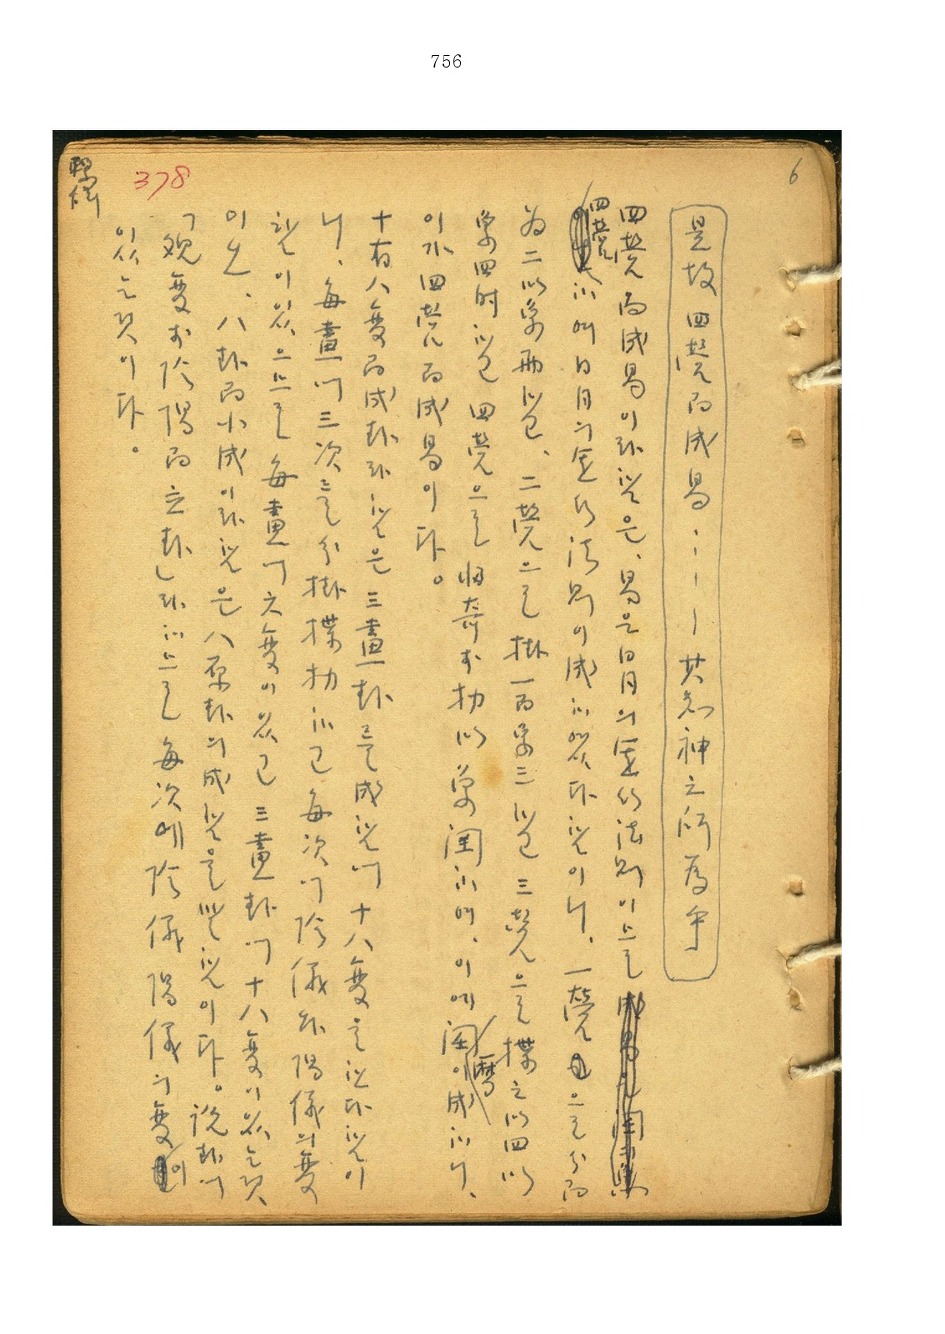 756
6
378
繫辭
是故四營而成易……其知神之所爲乎
四營而成易이라함은, 易은 日月의 運行法則이므로
四營하여 日月의 運行法則이 成하였다함이니, 一營으로 分而
为二以象兩하고, 二營으로 掛一而象三하고 三營으로 揲之以四以
象四時하고 四營으로 归奇於扐以象閏하여, 이에 閏曆이成하니,
이가 四營而成易이다。
十有八變而成卦라함은 三畫卦를 成함에 十八變을 한다함이
니, 每畫에 三次를 分掛揲扐하고 每次에 陰儀와 陽儀의 變
함이 있으므로 每畫에 六變이 있고 三畫卦에 十八變이 있는것
이오, 八卦而小成이라함은 八原卦의 成함을 말함이다。說卦에
「观變於陰陽而立卦」라하므로 每次에 陰儀陽儀의 變이
있는것이다。